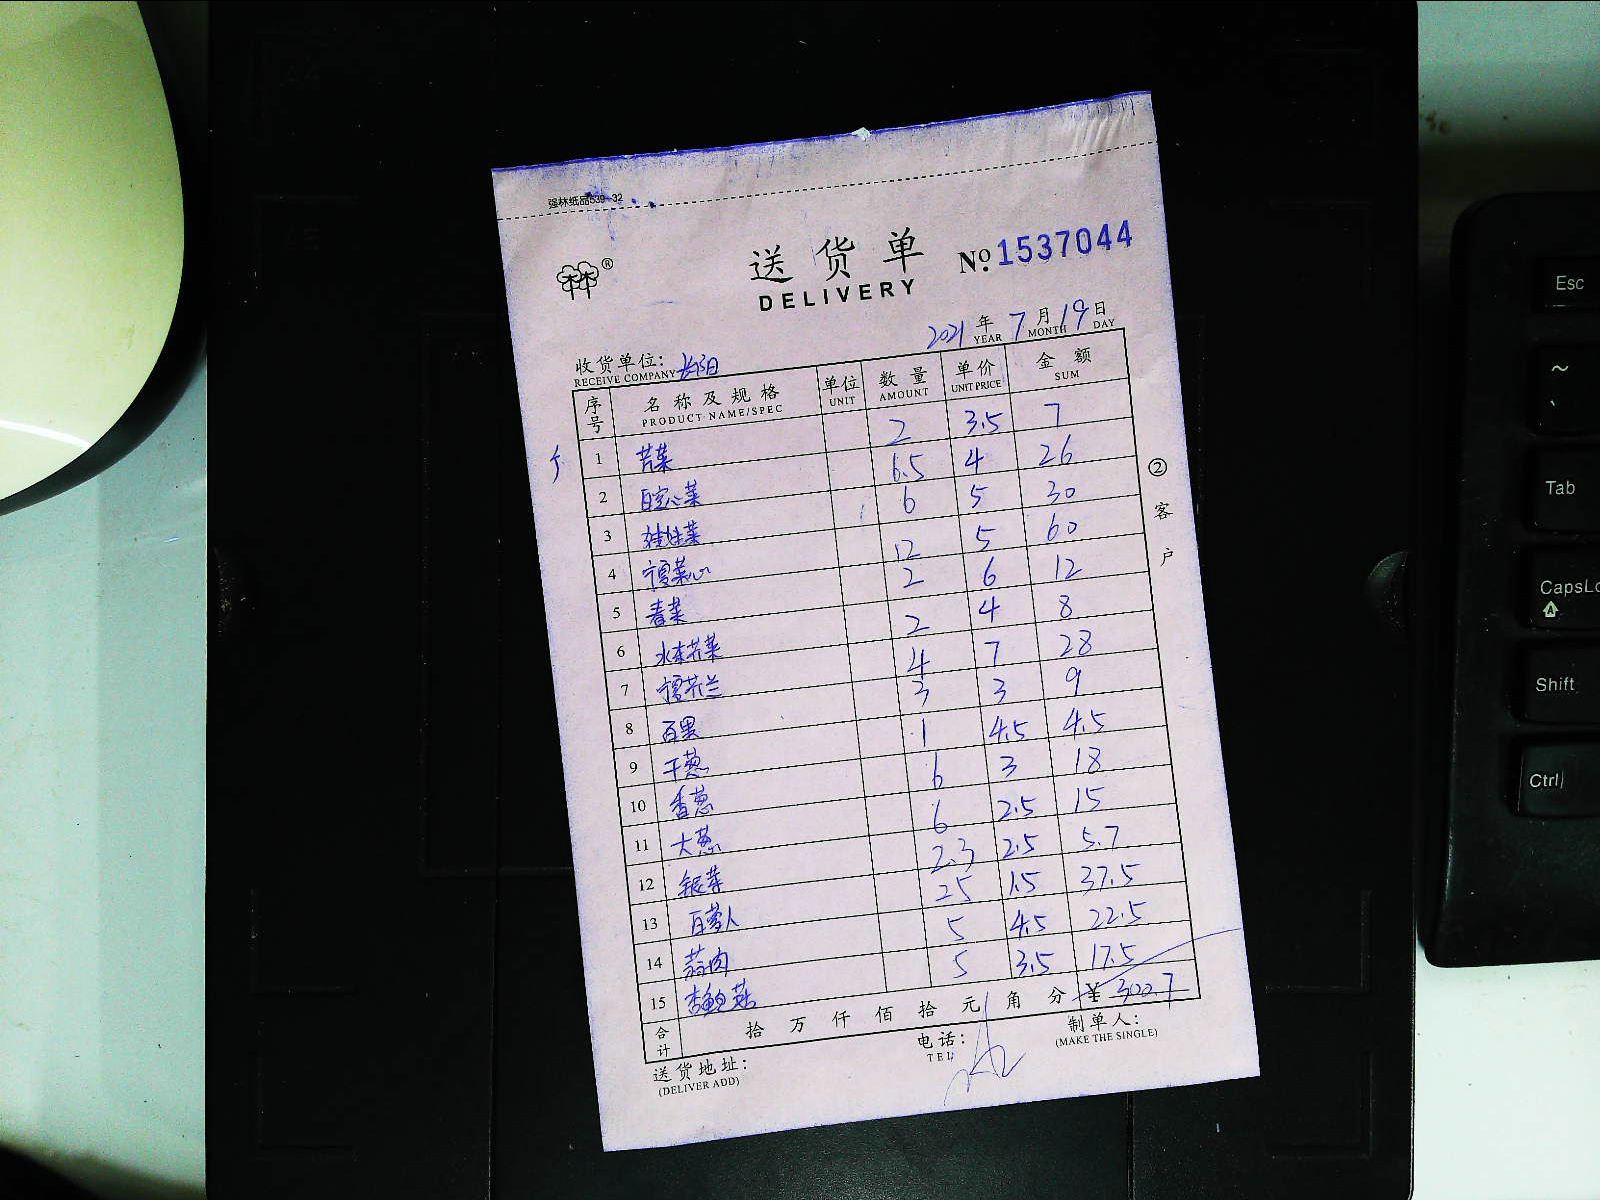 强林纸品539-32
®
送货单
DELIVERY
№ 1537044
2021年7月19日
YEAR MONTH DAY
收货单位:
RECEIVE COMPANY
序号 名称及规格 单位 数量 单价 金额
PRODUCT NAME/SPEC UNIT AMOUNT UNIT PRICE SUM
1 苦菜 2 3.5 7
2 白空心菜 6.5 4 26
3 娃娃菜 6 5 30
4 菜心 12 5 60
5 春菜 2 6 12
6 水东芥菜 2 4 8
7 芥兰 4 7 28
8 3 3 9
9 干葱 1 4.5 4.5
10 香葱 6 3 18
11 大葱 6 2.5 15
12 银芽 2.3 2.5 5.7
13 白萝卜 25 1.5 37.5
14 蒜肉 5 4.5 22.5
15 杏鲍菇 5 3.5 17.5
合计 拾 万 仟 佰 拾 元 角 分 ¥ 300.7
送货地址: 电话: 制单人:
(DELIVER ADD) TEL (MAKE THE SINGLE)
②客户
Esc
~
、
Tab
CapsLo
A
Shift
Ctrl